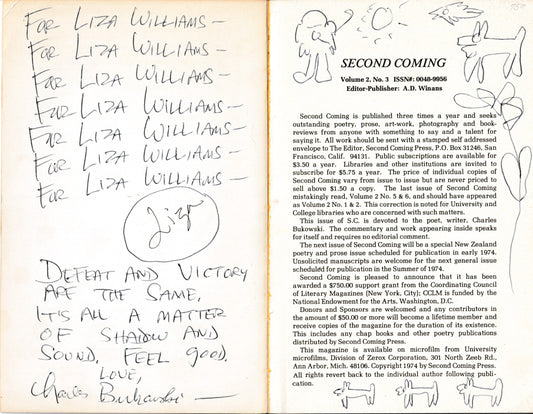 FOR LIZA WILLIAMS—
FOR LIZA WILLIAMS—
FOR LIZA WILLIAMS—
FOR LIZA WILLIAMS—
FOR LIZA WILLIAMS—
FOR LIZA WILLIAMS—
FOR LIZA WILLIAMS—
Liza
DEFEAT AND VICTORY
ARE THE SAME,
IT'S ALL A MATTER
OF SHADOW AND
SOUND, FEEL GOOD.
LOVE,
Charles Bukowski —
SECOND COMING
Volume 2, No. 3 ISSN#: 0048-9956
Editor-Publisher: A.D. Winans
Second Coming is published three times a year and seeks
outstanding poetry, prose, art-work, photography and book-
reviews from anyone with something to say and a talent for
saying it. All work should be sent with a stamped self addressed
envelope to The Editor, Second Coming Press, P.O. Box 31246, San
Francisco, Calif. 94131. Public subscriptions are available for
$3.50 a year. Libraries and other institutions are invited to
subscribe for $5.75 a year. The price of individual copies of
Second Coming vary from issue to issue but are never priced to
sell above $1.50 a copy. The last issue of Second Coming
mistakingly read, Volume 2 No. 5 & 6, and should have appeared
as Volume 2 No. 1 & 2. This correction is noted for University and
College libraries who are concerned with such matters.
This issue of S.C. is devoted to the poet, writer, Charles
Bukowski. The commentary and work appearing inside speaks
for itself and requires no editorial comment.
The next issue of Second Coming will be a special New Zealand
poetry and prose issue scheduled for publication in early 1974.
Unsolicited manuscripts are welcome for the next general issue
scheduled for publication in the Summer of 1974.
Second Coming is pleased to announce that it has been
awarded a $750.00 support grant from the Coordinating Council
of Literary Magazines (New York, City); CCLM is funded by the
National Endowment for the Arts, Washington, D.C.
Donors and Sponsors are welcomed and any contributions in
the amount of $50.00 or more will become a lifetime member and
receive copies of the magazine for the duration of its existence.
This includes any chap books and other poetry publications
distributed by Second Coming Press.
This magazine is available on microfilm from University
microfilms, Division of Zerox Corporation, 301 North Zeeb Rd.,
Ann Arbor, Mich. 48106. Copyright 1974 by Second Coming Press.
All rights revert back to the individual author following publi-
cation.